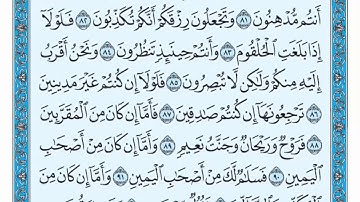 أَنتُم مُّدْهِنُونَ ٨١ وَتَجْعَلُونَ رِزْقَكُمْ أَنَّكُمْ تُكَذِّبُونَ ٨٢ فَلَوْلَا
إِذَا بَلَغَتِ الْحُلْقُومَ ٨٣ وَأَنتُمْ حِينَئِذٍ تَنظُرُونَ ٨٤ وَنَحْنُ أَقْرَبُ
إِلَيْهِ مِنكُمْ وَلَٰكِن لَّا تُبْصِرُونَ ٨٥ فَلَوْلَا إِن كُنتُمْ غَيْرَ مَدِينِينَ
٨٦ تَرْجِعُونَهَا إِن كُنتُمْ صَادِقِينَ ٨٧ فَأَمَّا إِن كَانَ مِنَ الْمُقَرَّبِينَ
٨٨ فَرَوْحٌ وَرَيْحَانٌ وَجَنَّتُ نَعِيمٍ ٨٩ وَأَمَّا إِن كَانَ مِنْ أَصْحَابِ
الْيَمِينِ ٩٠ فَسَلَامٌ لَّكَ مِنْ أَصْحَابِ الْيَمِينِ ٩١ وَأَمَّا إِن كَانَ مِنَ